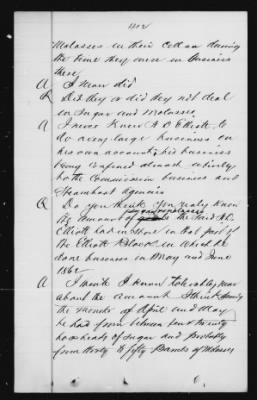 1202
Molasses in their cellar during
the time they were in business
there
A I never did
Q Did they or did they not deal
in Sugar and Molasses
A I never knew A C Elliott to
do a very large business on
his own account his business
being confined almost entirely
to the Commission business and
Steamboat Agencies
Q Do you think you really know
sugar molasses
the amount of in the said A.C.
Elliott had in Store in that part of
the Elliott Block in which he
done business in May and June
1862
A I think I know tolerably near
about the amount I think during
the months of April and May
he had from between four twenty
hogsheads of sugar and probably
from thirty to fifty Barrels of Molasses